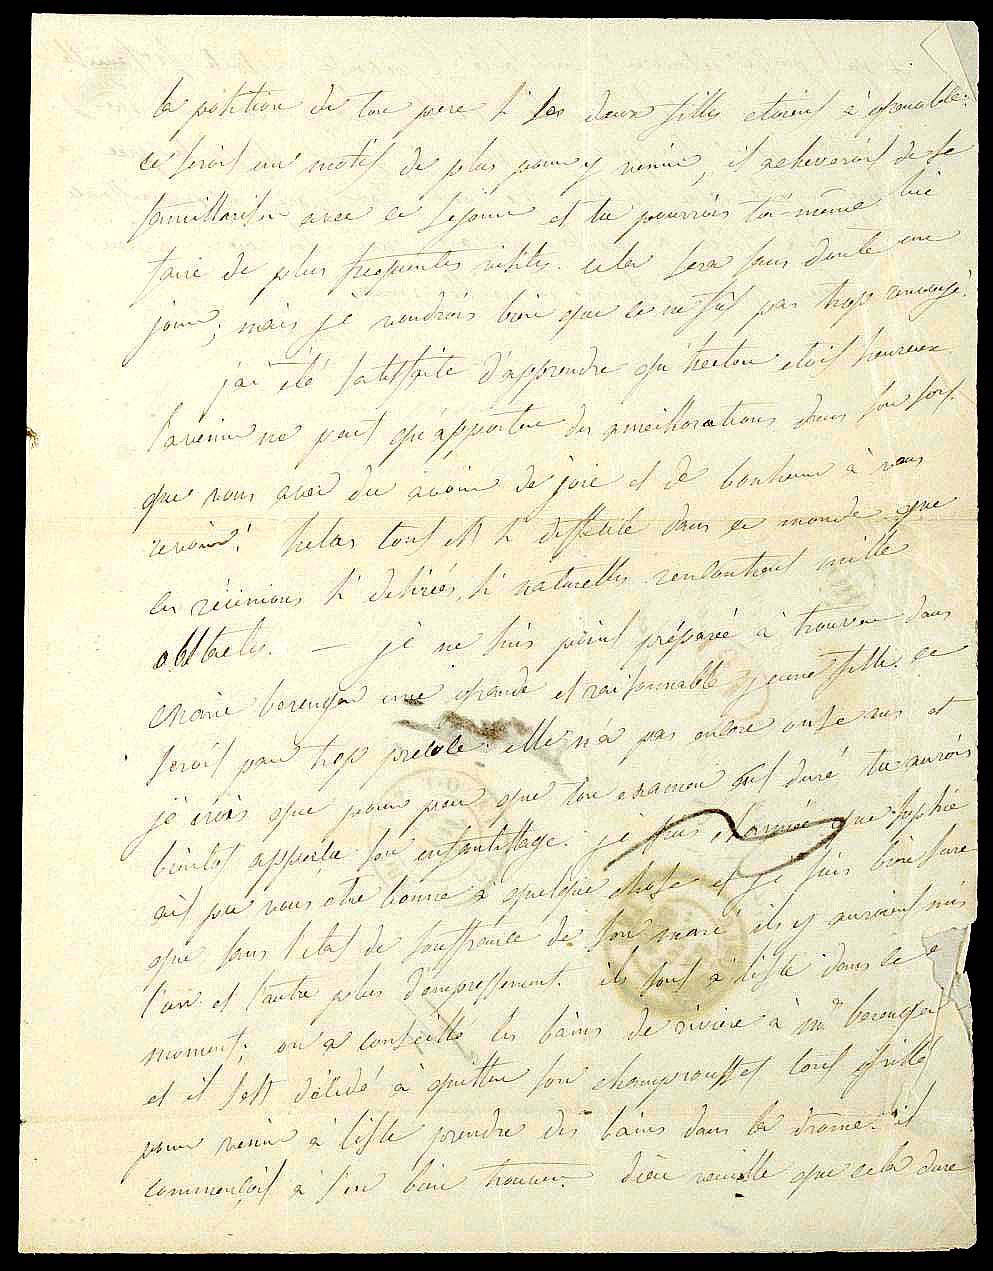 la position de ton pere si les deux filles etoient à grenoble.
ce seroit un motif de plus pour y venir, il acheveroit de se
familliariser avec ce sejour et tu pourrois toi-même lui
faire de plus frequentes visites. cela sera sans doute un
jour; mais je voudrois bien que ce ne fut pas trop renvoyé.
j'ai été satisfaite d'apprendre qu'hector etoit heureux
l'avenir ne peut qu'apporter des ameillorations dans son sort.
que vous avez du avoir de joie et de bonheur à vous
revoir! helas tout est si difficile dans ce monde que
ces réunions si desirées, si naturelles rencontrent mille
obstacles. — je ne suis point préparée à trouver dans
marie berenger une grande et raisonnable jeune fille. ce
seroit par trop précoce. elle n'a pas encore onze ans et
je crois que pour peu que ton examen eut duré tu aurois
bientot apperçu son enfantillage. je suis charmée que sophie
ait pu vous etre bonne à quelque chose et je suis bien sure
que sans l'etat de souffrance de son mari ils y auroient mis
l'un et l'autre plus d'empressement. ils sont à l'isle dans ce
moment; on a conseillé les bains de rivière à mr berenger
et il s'est décidé à quitter son champrousset tout grillé
pour venir à l'isle prendre des bains dans la drome. il
commençoit à s'en bien trouver. dieu veuille que cela dure